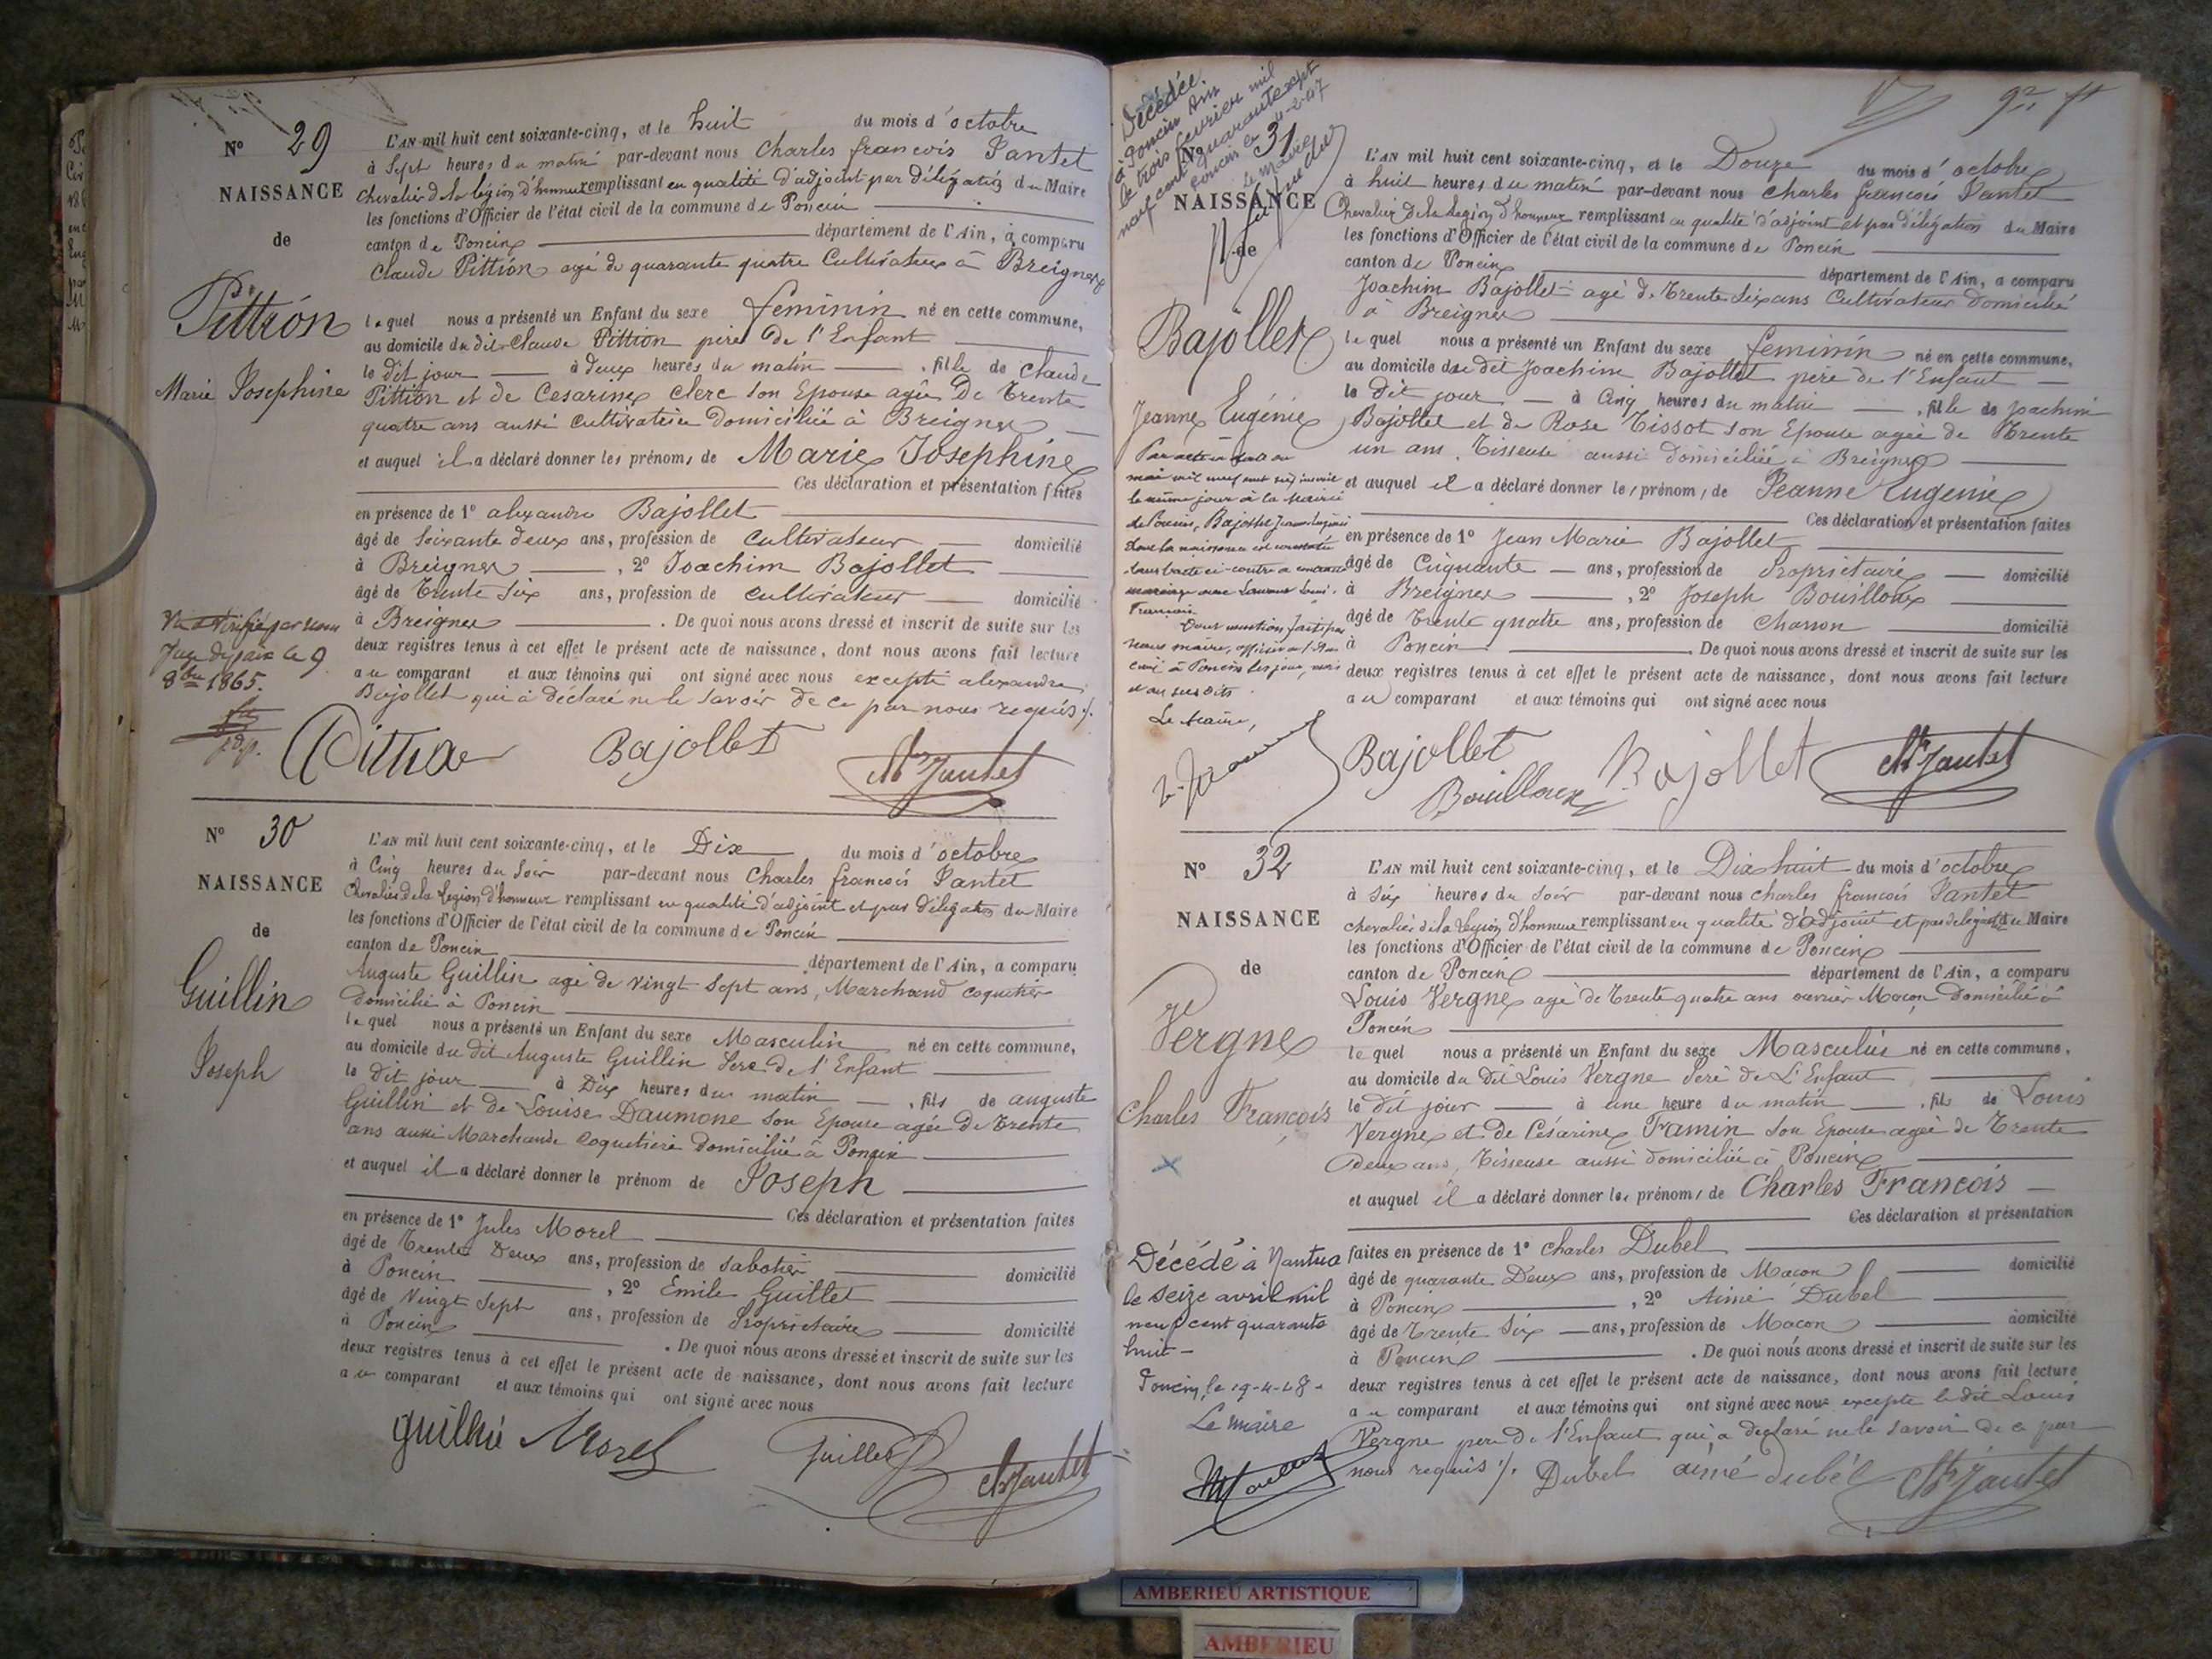 N° 29
NAISSANCE
de
Pittion
Marie Josephine
L'AN mil huit cent soixante-cinq, et le huit du mois d'octobre
à Sept heures du matin par-devant nous Charles francois Jantet
Chevalier de la légion d'honneur remplissant en qualité d'adjoint par délégation du Maire
les fonctions d'Officier de l'état civil de la commune de Poncin
canton de Poncin département de l'Ain, a comparu
Claude Pittion agé de quarante quatre Cultivateur à Breignes
lequel nous a présenté un Enfant du sexe feminin né en cette commune,
au domicile du dit Claude Pittion père de l'Enfant
le dit jour à deux heures du matin, fille de Claude
Pittion et de Cesarine Clerc son Epouse agée De trente
quatre ans aussi Cultivatrice Domiciliée à Breignes
et auquel il a déclaré donner les prénoms de Marie Josephine
Ces déclaration et présentation faites
en présence de 1° alexandre Bajollet
âgé de Soixante deux ans, profession de Cultivateur domicilié
à Breignes, 2° Joachim Bajollet
âgé de Trente Six ans, profession de Cultivateur domicilié
à Breignes. De quoi nous avons dressé et inscrit de suite sur les
deux registres tenus à cet effet le présent acte de naissance, dont nous avons fait lecture
au comparant et aux témoins qui ont signé avec nous excepté alexandre
Bajollet qui à déclaré ne le savoir de ce par nous requis ./.
par nous
Juge de paix le 9
8bre 1865.
Pittion Bajollet Ch Jantet
N° 30
NAISSANCE
de
Guillin
Joseph
L'AN mil huit cent soixante-cinq, et le Dix du mois d'octobre
à Cinq heures du Soir par-devant nous Charles francois Jantet
Chevalier de la legion d'honneur remplissant en qualité d'adjoint et par délégation du Maire
les fonctions d'Officier de l'état civil de la commune de Poncin
canton de Poncin département de l'Ain, a comparu
Auguste Guillin agé de vingt Sept ans, Marchand coquetier
Domicilié à Poncin
lequel nous a présenté un Enfant du sexe Masculin né en cette commune,
au domicile du dit Auguste Guillin Père de l'Enfant
le dit jour à Dix heures du matin, fils de auguste
Guillin et de Louise Daumone son Epouse agée De trente
ans aussi Marchande Coquetière Domiciliée à Poncin
et auquel il a déclaré donner le prénom de Joseph
Ces déclaration et présentation faites
en présence de 1° Jules Morel
âgé de Trente Deux ans, profession de Sabotier domicilié
à Poncin, 2° Emile Guillet
âgé de Vingt Sept ans, profession de Propriétaire domicilié
à Poncin. De quoi nous avons dressé et inscrit de suite sur les
deux registres tenus à cet effet le présent acte de naissance, dont nous avons fait lecture
au comparant et aux témoins qui ont signé avec nous
Guillin Morel Guillet Ch Jantet
92
Décédée
à Poncin Ain
le trois fevrier mil
neuf cent quarante sept
Poncin le 4-2-47
Le Maire
N° 31
NAISSANCE
de
Bajollet
Jeanne Eugénie
L'AN mil huit cent soixante-cinq, et le Douze du mois d'octobre
à huit heures du matin par-devant nous Charles francois Jantet
Chevalier de la Legion d'honneur remplissant en qualité d'adjoint et par délégation du Maire
les fonctions d'Officier de l'état civil de la commune de Poncin
canton de Poncin département de l'Ain, a comparu
Joachim Bajollet agé de Trente Six ans Cultivateur Domicilié
à Breignes
lequel nous a présenté un Enfant du sexe feminin né en cette commune,
au domicile du dit Joachim Bajollet père de l'Enfant
le dit jour à Cinq heures du matin, fille de Joachim
Bajollet et de Rose Tissot son Epouse agée de Trente
un ans, Tisseuse aussi domiciliée à Breignes
et auquel il a déclaré donner les prénoms de Jeanne Eugenie
Ces déclaration et présentation faites
en présence de 1° Jean Marie Bajollet
âgé de Cinquante ans, profession de Propriétaire domicilié
à Breignes, 2° Joseph Bouilloux
âgé de Trente quatre ans, profession de Charron domicilié
à Poncin. De quoi nous avons dressé et inscrit de suite sur les
deux registres tenus à cet effet le présent acte de naissance, dont nous avons fait lecture
au comparant et aux témoins qui ont signé avec nous
Par acte
mai mil neuf cent
le même jour à la Mairie
de Poncin, Bajollet Jeanne Eugénie
dont la naissance est constatée
dans l'acte ci-contre a contracté
mariage avec
François.
Dont mention faite par
nous maire, officier de l'état
civil à Poncin les jour, mois
et an susdits.
Le Maire,
Bajollet Bouilloux Bajollet Ch Jantet
N° 32
NAISSANCE
de
Vergne
Charles François
L'AN mil huit cent soixante-cinq, et le Dix huit du mois d'octobre
à Six heures du Soir par-devant nous Charles francois Jantet
Chevalier de la légion d'honneur remplissant en qualité d'adjoint et par délégation du Maire
les fonctions d'Officier de l'état civil de la commune de Poncin
canton de Poncin département de l'Ain, a comparu
Louis Vergne agé de trente quatre ans ouvrier Maçon Domicilié à
Poncin
lequel nous a présenté un Enfant du sexe Masculin né en cette commune,
au domicile du dit Louis Vergne Père de L'Enfant
le dit jour à une heure du matin, fils de Louis
Vergne et de Césarine Framin son Epouse agée de Trente
deux ans, Tisseuse aussi domiciliée à Poncin
et auquel il a déclaré donner les prénoms de Charles Francois
Ces déclaration et présentation
faites en présence de 1° Charles Dubel
âgé de quarante Deux ans, profession de Macon domicilié
à Poncin, 2° Aimé Dubel
âgé de Trente Six ans, profession de Macon domicilié
à Poncin. De quoi nous avons dressé et inscrit de suite sur les
deux registres tenus à cet effet le présent acte de naissance, dont nous avons fait lecture
au comparant et aux témoins qui ont signé avec nous excepté le dit Louis
Vergne père de l'Enfant qui a déclaré ne le savoir de ce par
nous requis ./. Dubel aimé dubel Ch Jantet
Décédé à Nantua
le seize avril mil
neuf cent quarante
huit -
Poncin, le 19-4-48 -
Le maire
AMBERIEU ARTISTIQUE
AMBERIEU